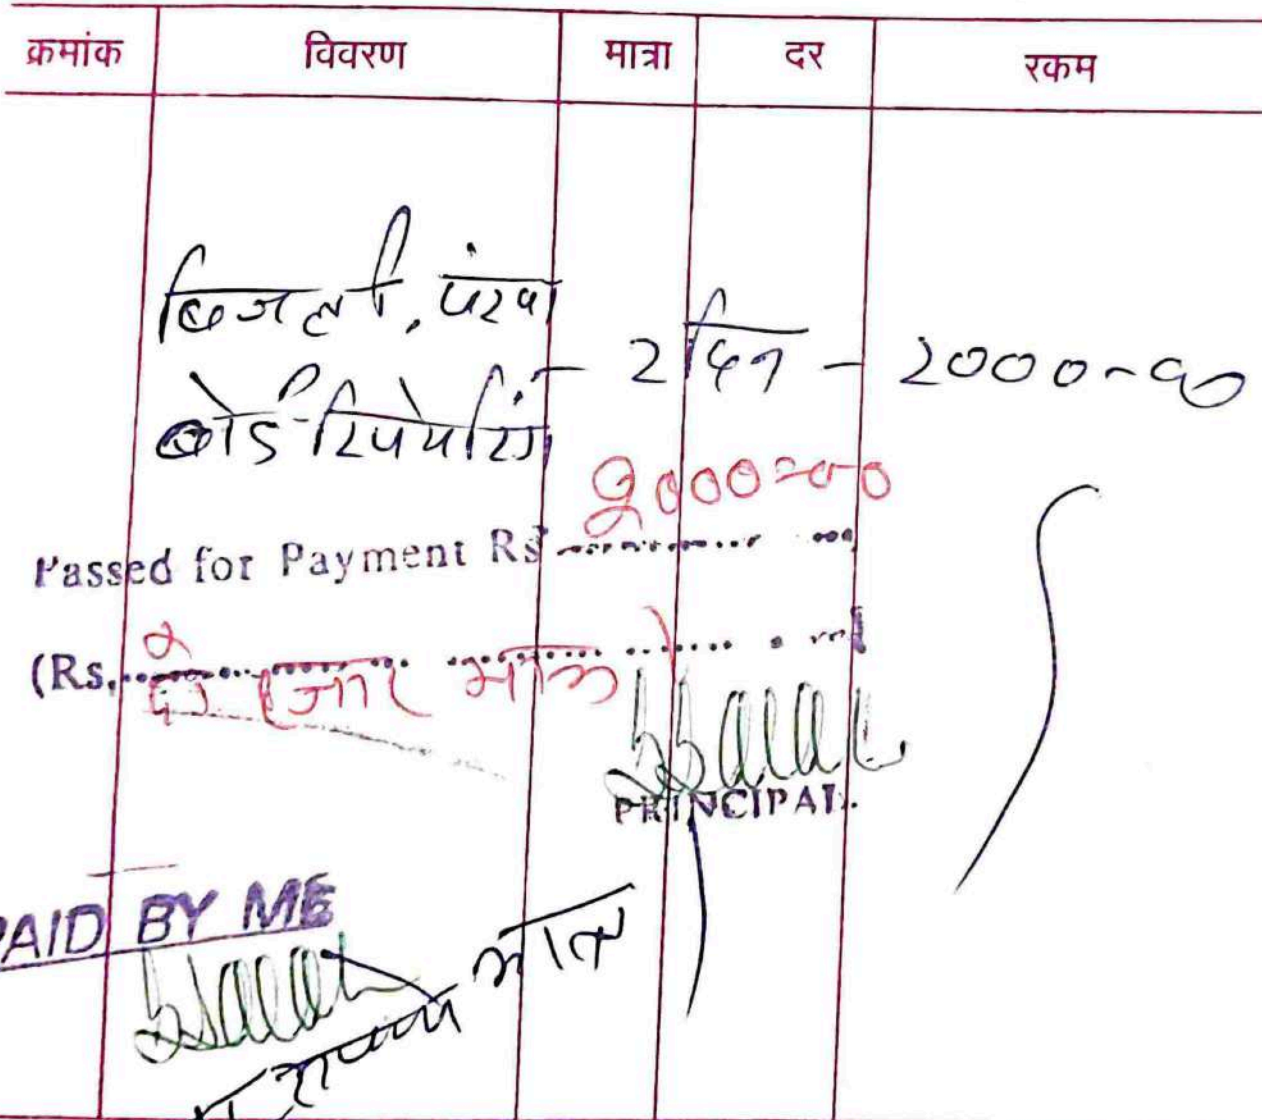 क्रमांक विवरण मात्रा दर रकम
बिजली, पंखा
बोर्ड रिपेयरिंग - 2 दिन - 2000-00
2000=00
Passed for Payment Rs
(Rs. दो हजार मात्र)
PRINCIPAL.
PAID BY ME